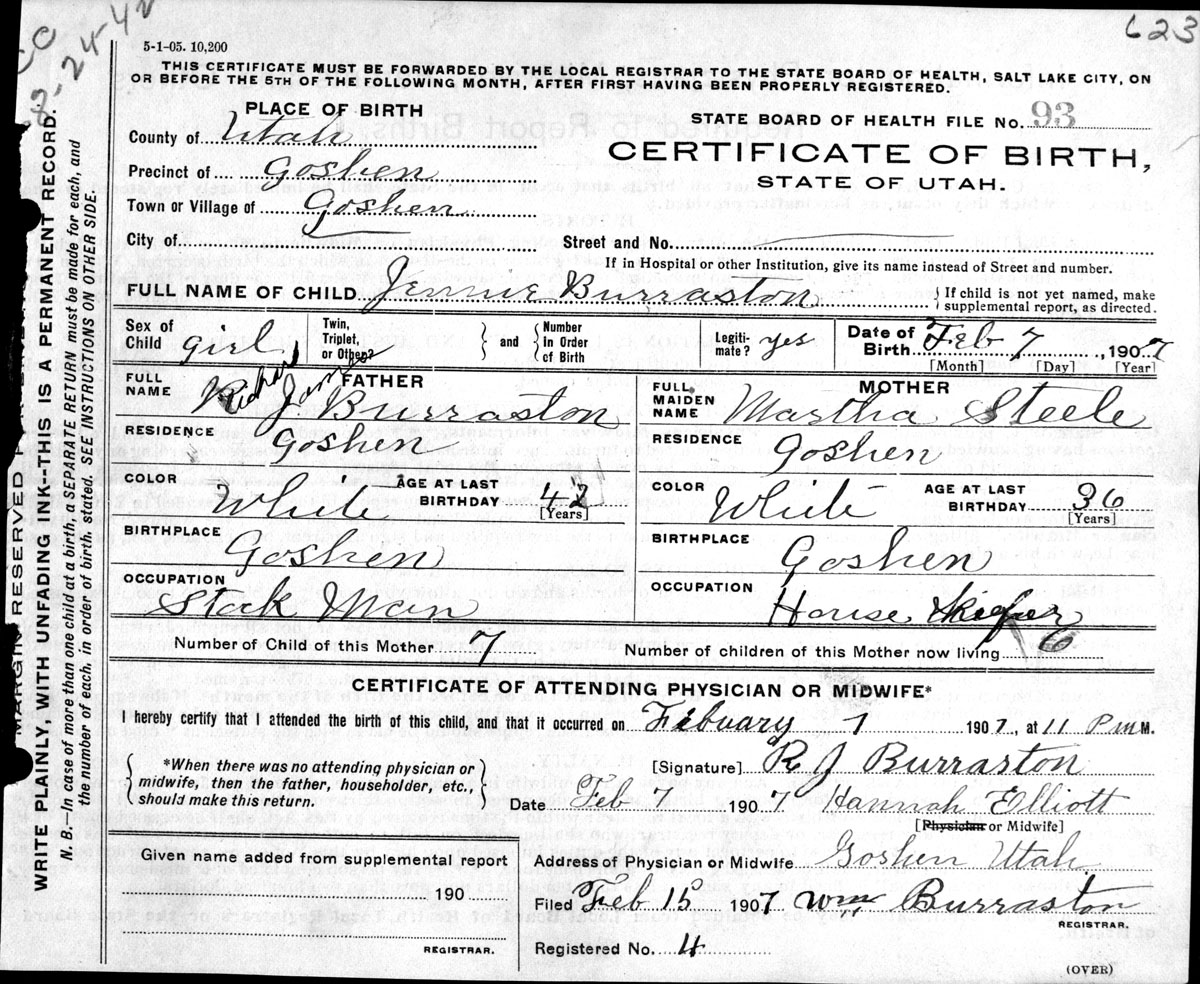 623
8-24-42
5-1-05. 10,200
THIS CERTIFICATE MUST BE FORWARDED BY THE LOCAL REGISTRAR TO THE STATE BOARD OF HEALTH, SALT LAKE CITY, ON
OR BEFORE THE 5TH OF THE FOLLOWING MONTH, AFTER FIRST HAVING BEEN PROPERLY REGISTERED.
PLACE OF BIRTH
STATE BOARD OF HEALTH FILE No. 93
County of Utah
CERTIFICATE OF BIRTH,
Precinct of Goshen
STATE OF UTAH.
Town or Village of Goshen
City of
Street and No.
If in Hospital or other Institution, give its name instead of Street and number.
FULL NAME OF CHILD Jennie Burraston
{ If child is not yet named, make supplemental report, as directed.
Sex of Child girl
Twin, Triplet, or Other?
} and {
Number in Order of Birth
Legiti-mate? yes
Date of Birth Feb 7, 1907
[Month] [Day] [Year]
FATHER
FULL NAME Richard James
R J Burraston
RESIDENCE Goshen
COLOR White
AGE AT LAST BIRTHDAY 42
[Years]
BIRTHPLACE Goshen
OCCUPATION
Stock Man
MOTHER
FULL MAIDEN NAME Martha Steele
RESIDENCE Goshen
COLOR White
AGE AT LAST BIRTHDAY 36
[Years]
BIRTHPLACE Goshen
OCCUPATION House
Number of Child of this Mother 7
Number of children of this Mother now living 6
CERTIFICATE OF ATTENDING PHYSICIAN OR MIDWIFE*
I hereby certify that I attended the birth of this child, and that it occurred on Febuary 7 1907, at 11 P M.
{ *When there was no attending physician or midwife, then the father, householder, etc., should make this return. }
[Signature] R J Burraston
Date Feb 7 1907 Hannah Elliott
[Physician or Midwife]
Given name added from supplemental report
190
REGISTRAR.
Address of Physician or Midwife Goshen Utah
Filed Feb 15 1907 Wm Burraston
REGISTRAR.
Registered No. 4
(OVER)
MARGIN RESERVED
WRITE PLAINLY, WITH UNFADING INK—THIS IS A PERMANENT RECORD.
N. B.—In case of more than one child at a birth, a SEPARATE RETURN must be made for each, and
the number of each, in order of birth, stated. SEE INSTRUCTIONS ON OTHER SIDE